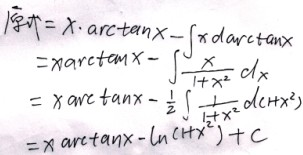 原式= x·arctanx-∫xdarctanx
=xarctanx-∫x/(1+x²) dx
=xarctanx-1/2∫1/(1+x²) d(1+x²)
=xarctanx-ln(1+x²)+C